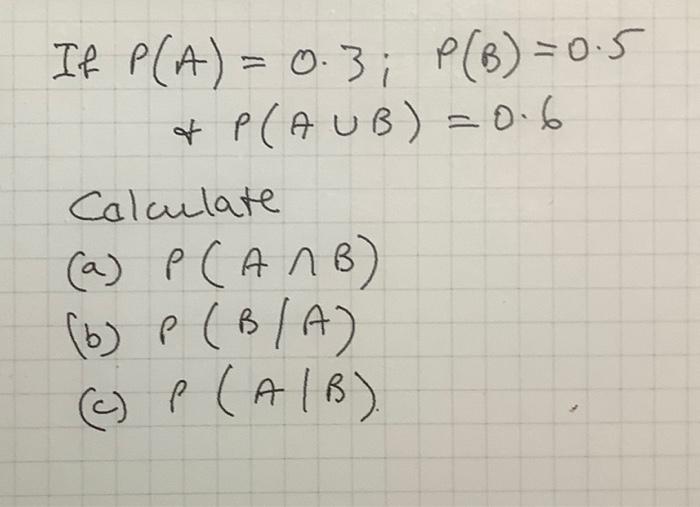 If P(A) = 0.3; P(B) = 0.5
& P(A ∪ B) = 0.6
Calculate
(a) P(A ∩ B)
(b) P(B/A)
(c) P(A|B).